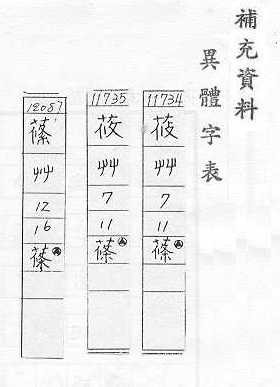 補充資料
異體字表
11734
莜
艸
7
11
蓧
11735
莜
艸
7
11
蓧
12087
蓧
艸
12
16
蓧